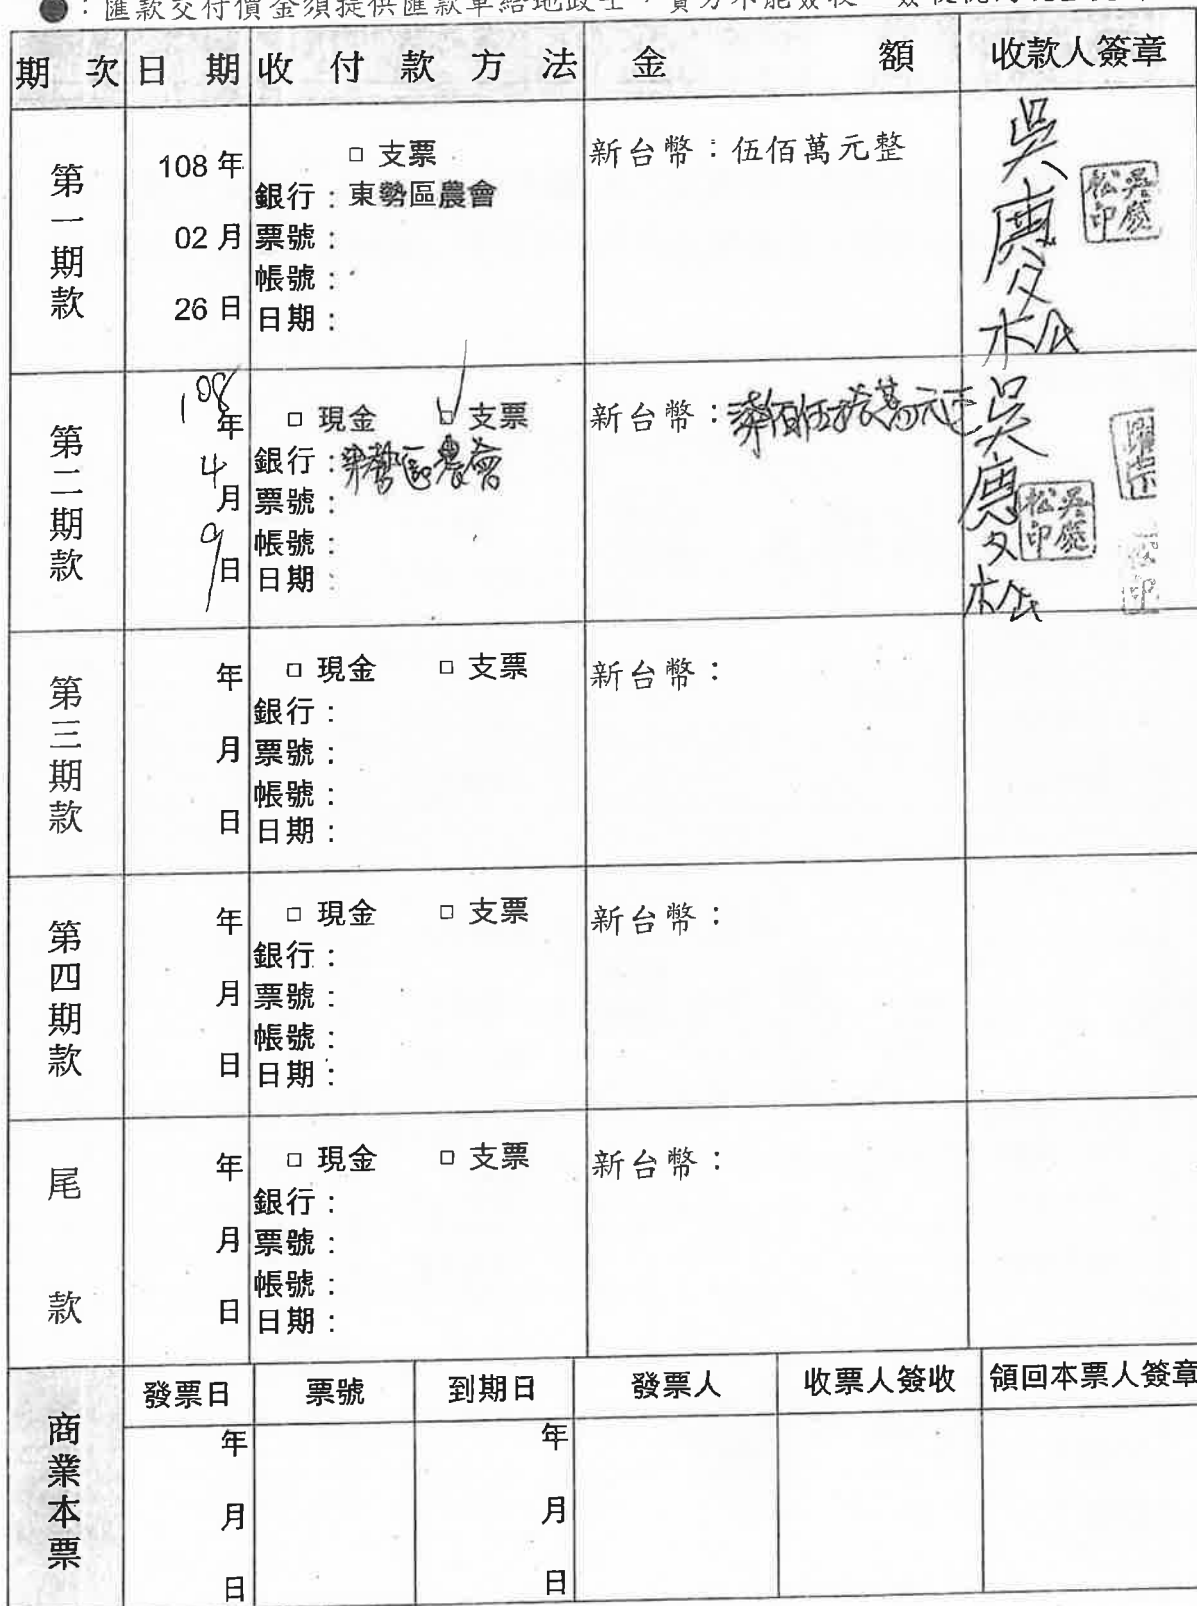 ●：匯款交付價金須提供匯款單給地政士，賣方不能簽收
期 次 日 期 收 付 款 方 法 金 額 收款人簽章
第一期款
108年
02月
26日
□ 支票
銀行：東勢區農會
票號：
帳號：
日期：
新台幣：伍佰萬元整
吳慶松
吳慶松印
第二期款
108年
4月
9日
□ 現金 ☑ 支票
銀行：東勢區農會
票號：
帳號：
日期：
新台幣：柒佰伍拾萬元正
吳慶松
吳慶松印
第三期款
年
月
日
□ 現金 □ 支票
銀行：
票號：
帳號：
日期：
新台幣：
第四期款
年
月
日
□ 現金 □ 支票
銀行：
票號：
帳號：
日期：
新台幣：
尾款
年
月
日
□ 現金 □ 支票
銀行：
票號：
帳號：
日期：
新台幣：
商業本票
發票日 票號 到期日 發票人 收票人簽收 領回本票人簽章
年 年
月 月
日 日